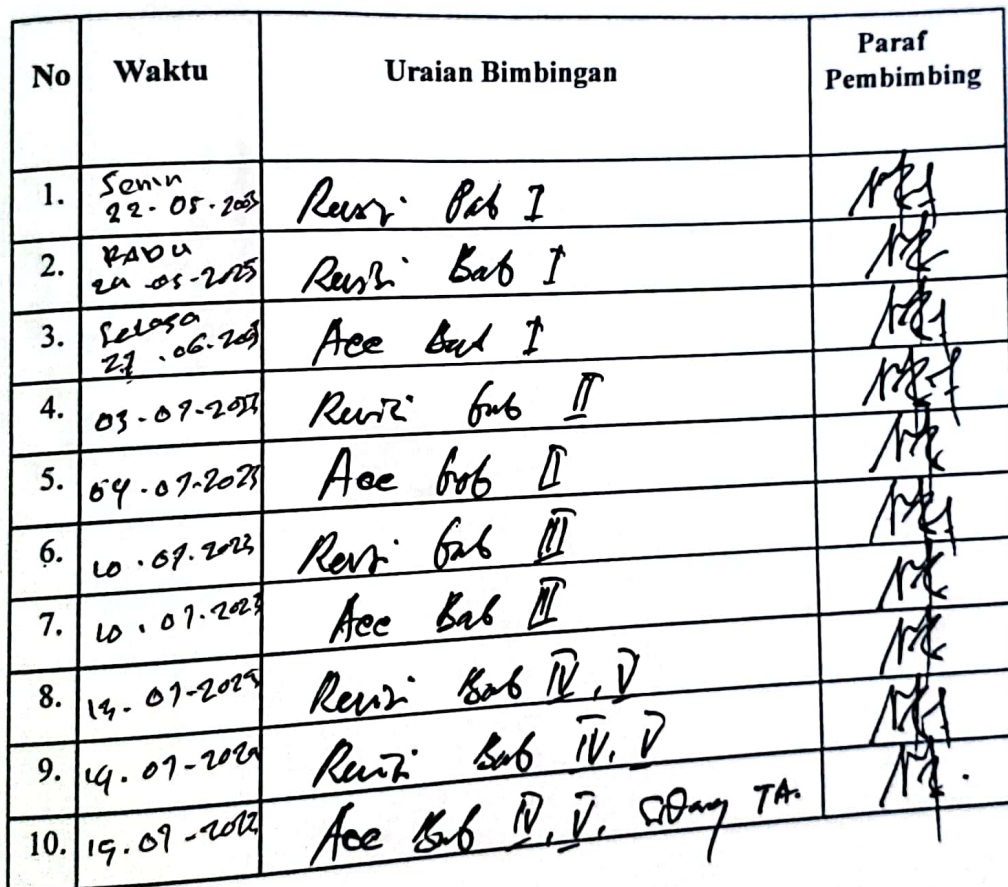 No Waktu Uraian Bimbingan Paraf Pembimbing
1. Senin 22-05-2023 Revisi Bab I
2. RABU 24-05-2023 Revisi Bab I
3. Selasa 27.06.2023 Acc Bab I
4. 03-07-2023 Revisi Bab II
5. 04.07-2023 Acc Bab II
6. 10.07.2023 Revisi Bab III
7. 10.07.2023 Acc Bab III
8. 07-2023 Revisi Bab IV, V
9. 07-2023 Revisi Bab IV, V
10. 19.07-2023 Acc Bab IV, V, Sidang TA.